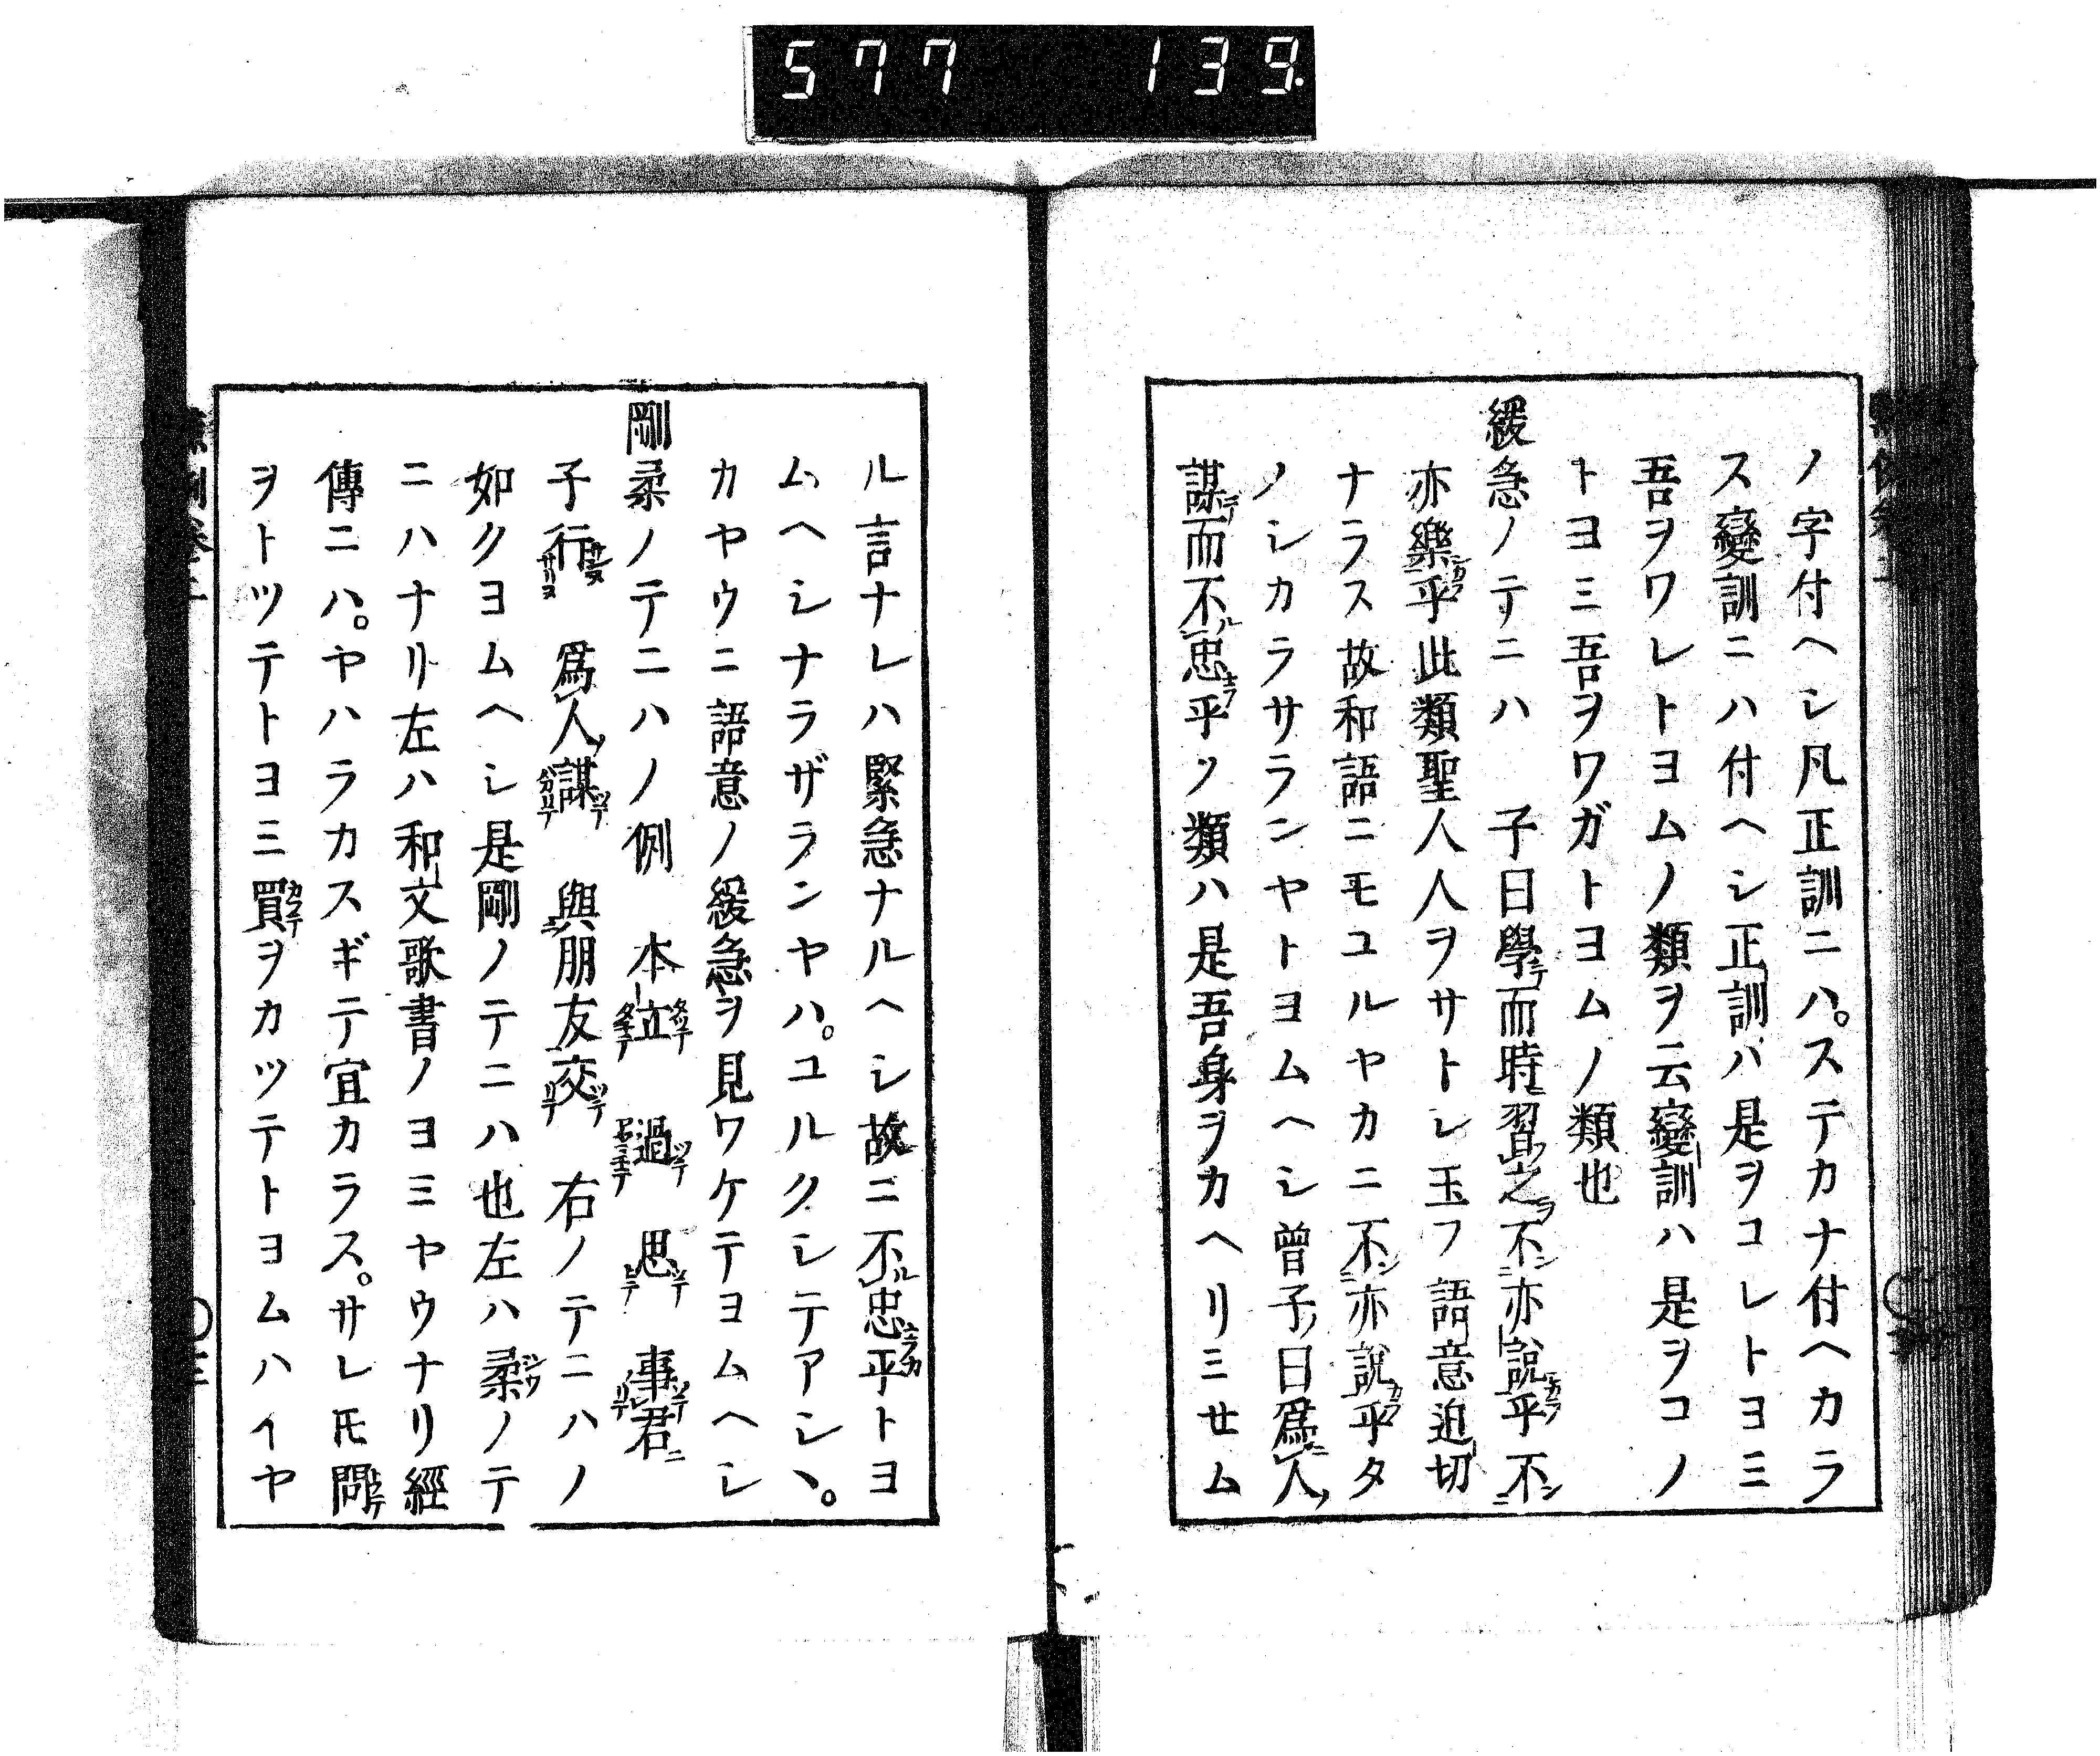 577 139.
ノ字付ヘシ凡正訓ニハ。ステカナ付ヘカラ
ス變訓ニハ付ヘシ正訓バ是ヲコレトヨミ
吾ヲワレトヨムノ類ヲ云變訓ハ是ヲコノ
トヨミ吾ヲワガトヨムノ類也
緩急ノテニハ 子曰學テ而時ニ習フ之ヲ不ンニ亦説カラ乎不ンニ
亦樂カラ乎此類聖人人ヲサトシ玉フ語意迫切
ナラス故和語ニモユルヤカニ不ンニ亦説カラ乎タ
ノシカラサランヤトヨムヘシ曾子ノ曰爲ニ人ノ
謀テ而不ル忠ナラ乎ノ類ハ是吾身ヲカヘリミせム
ル言ナレハ緊急ナルヘシ故ニ不ル忠ナラカ乎トヨ
ムヘシナラザランヤハ。ユルクシテアシヽ。
カヤウニ語意ノ緩急ヲ見ワケテヨムヘシ
剛柔ノテニハノ例 本立 過 思 事君ニ
子行 爲人ノ謀 與朋友交 右ノテニハノ
如クヨムヘシ是剛ノテニハ也左ハ柔ノテ
ニハナリ左ハ和文歌書ノヨミヤウナリ經
傳ニハ。ヤハラカスギテ宜カラス。サレ𪜈問
ヲトツテトヨミ買ヲカツテトヨムハイヤ